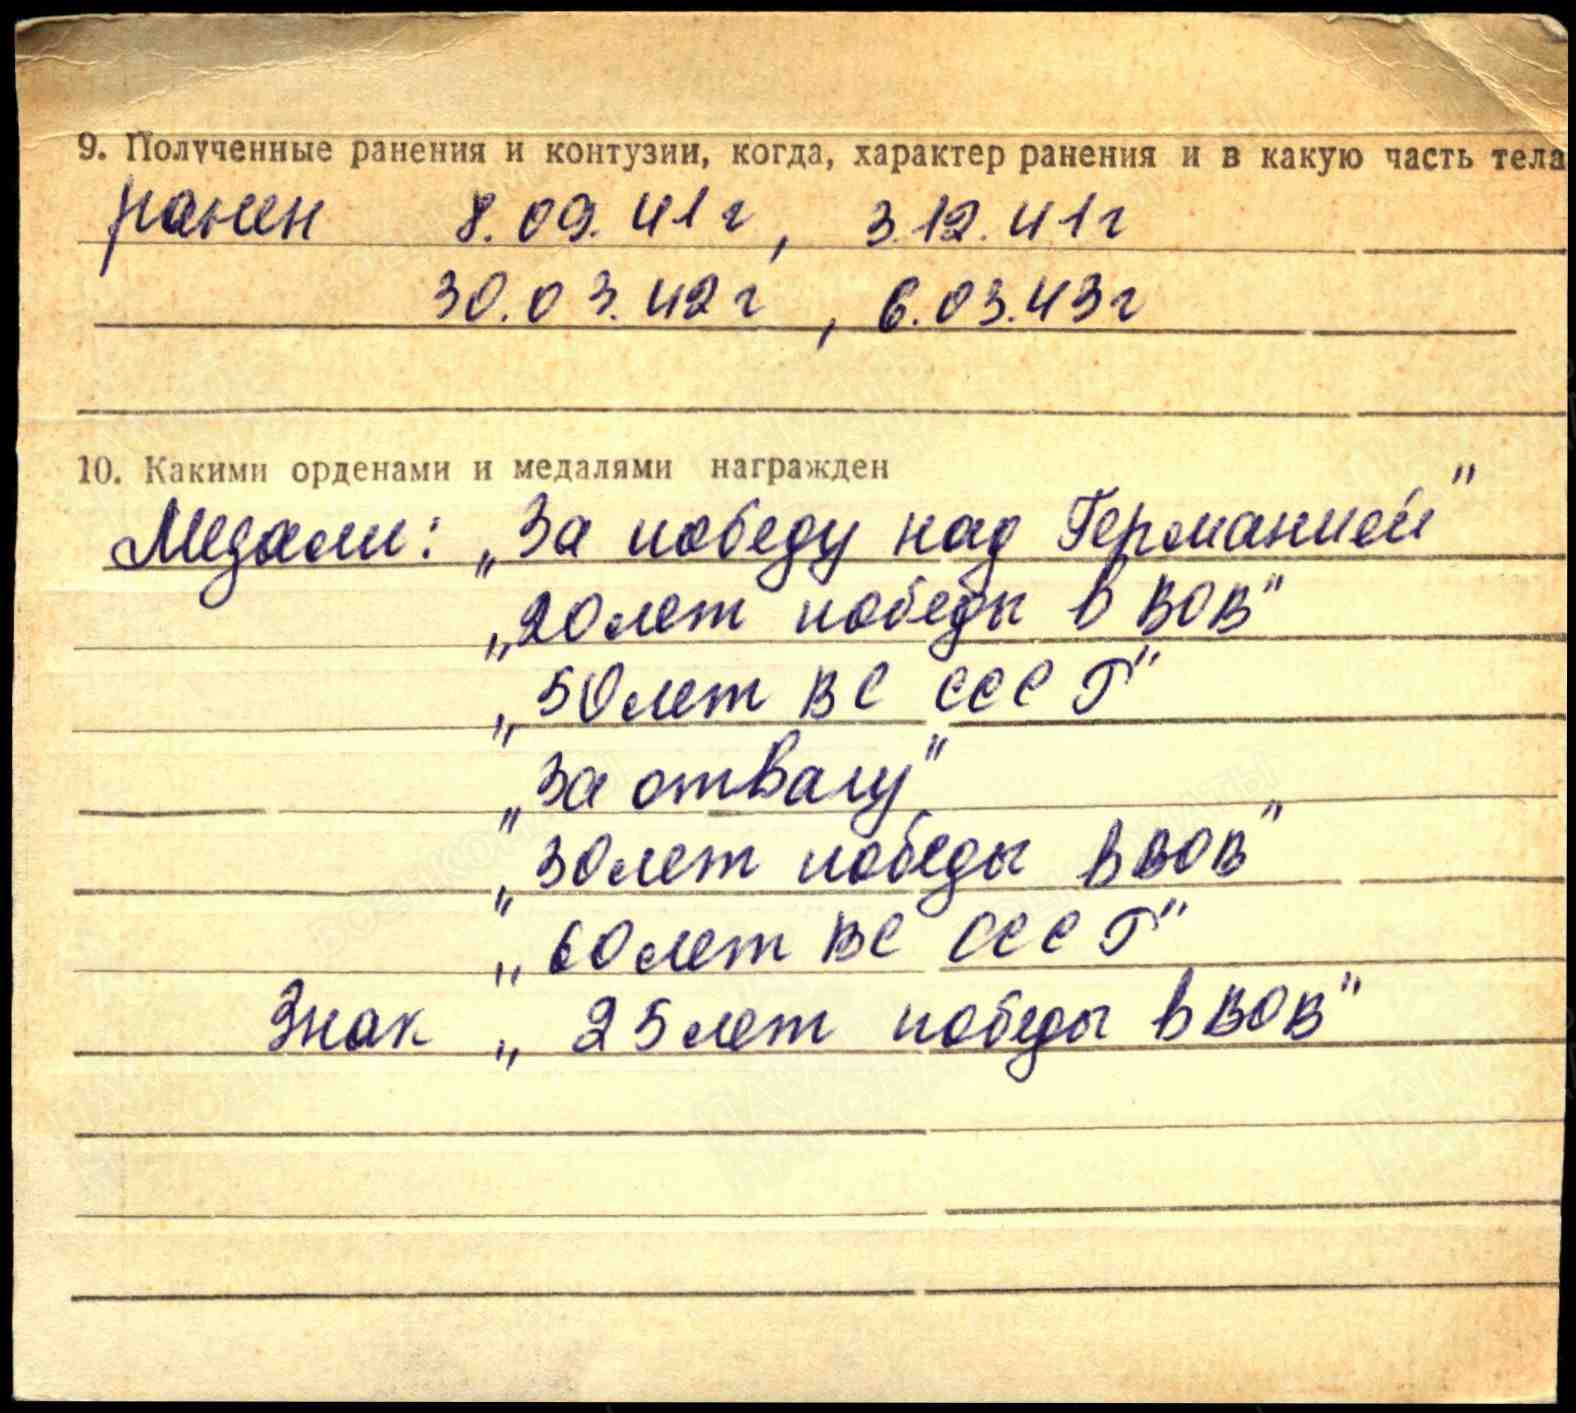 9. Полученные ранения и контузии, когда, характер ранения и в какую часть тела
ранен 8.09.41г, 3.12.41г
30.03.42г, 6.03.43г
10. Какими орденами и медалями награжден
Медали: „За победу над Германией"
„20 лет победы в ВОВ"
„50 лет ВС СССР"
„За отвагу"
„30 лет победы в ВОВ"
„60 лет ВС СССР"
Знак „25 лет победы в ВОВ"